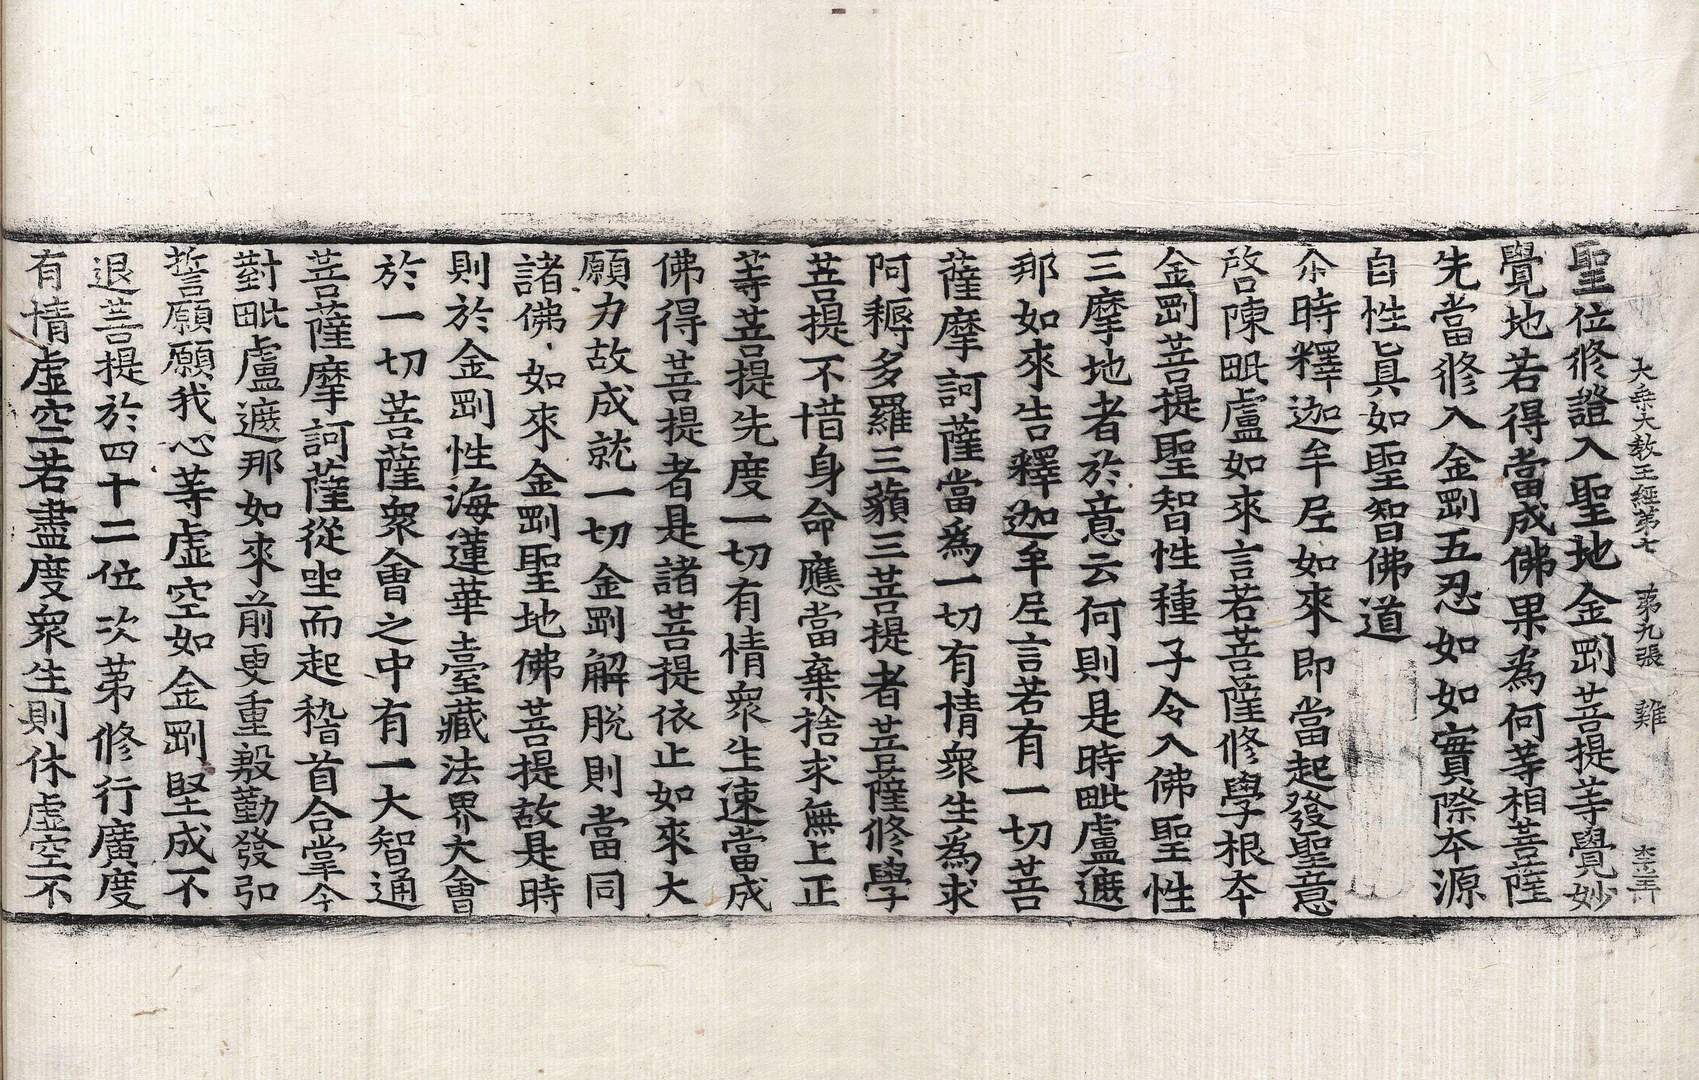 大乗大教王經第七 第九張 雞
聖位修證入聖地金剛菩提等覺妙
覺地若得當成佛果爲何等相菩薩
先當修入金剛五忍如如實際本源
自性眞如聖智佛道
尒時釋迦牟尼如來即當起發聖意
啓陳毗盧如來言若菩薩修學根本
金剛菩提聖智性種子令入佛聖性
三摩地者於意云何則是時毗盧遮
那如來告釋迦牟尼言若有一切菩
薩摩訶薩當爲一切有情衆生爲求
阿耨多羅三藐三菩提者菩薩修學
菩提不惜身命應當棄捨求無上正
等菩提先度一切有情衆生速當成
佛得菩提者是諸菩提依止如來大
願力故成就一切金剛解脫則當同
諸佛如來金剛聖地佛菩提故是時
則於金剛性海蓮華臺藏法界大會
於一切菩薩衆會之中有一大智通
菩薩摩訶薩從坐而起稽首合掌今
對毗盧遮那如來前更重慇勤發弘
誓願願我心等虛空如金剛堅成不
退菩提於四十二位次第修行廣度
有情虛空若盡度衆生則休虛空不